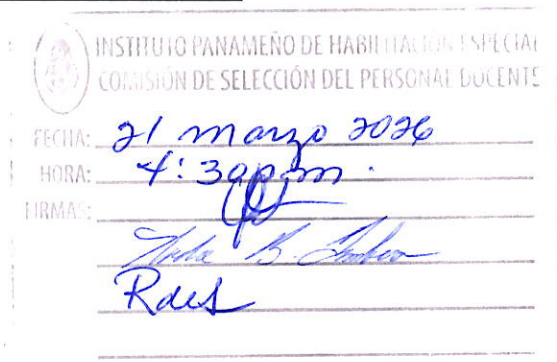 INSTITUTO PANAMEÑO DE HABILITACIÓN ESPECIAL
COMISIÓN DE SELECCIÓN DEL PERSONAL DOCENTE
FECHA: 21 marzo 2026
HORA: 4:30 p.m.
FIRMAS: